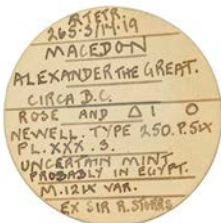 AR TETR
265.3/14.19
MACEDON
ALEXANDER THE GREAT.
CIRCA B.C.
ROSE AND △ 1 O
NEWELL. TYPE 250. P.
PL. XXX. 3.
UNCERTAIN MINT
PROBABLY IN EGYPT.
M. 124 VAR.
EX SIR R. STORRS